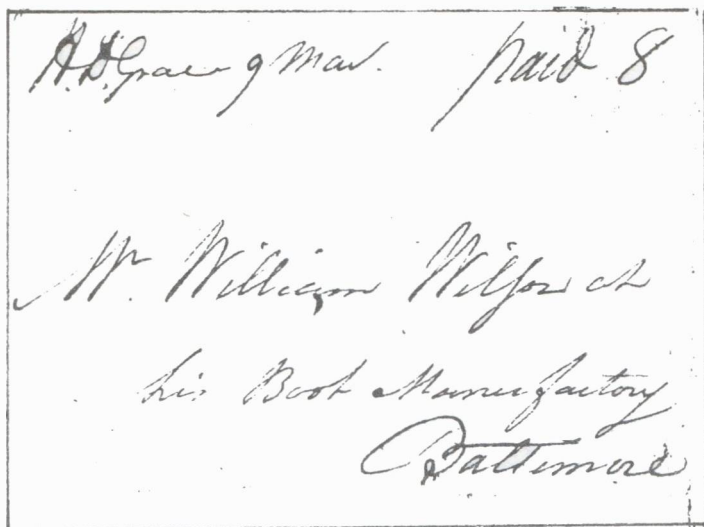 H.D.Grace 9 Mar. paid 8
Mr. William Wilson at
his Boot Manufactory
Baltimore